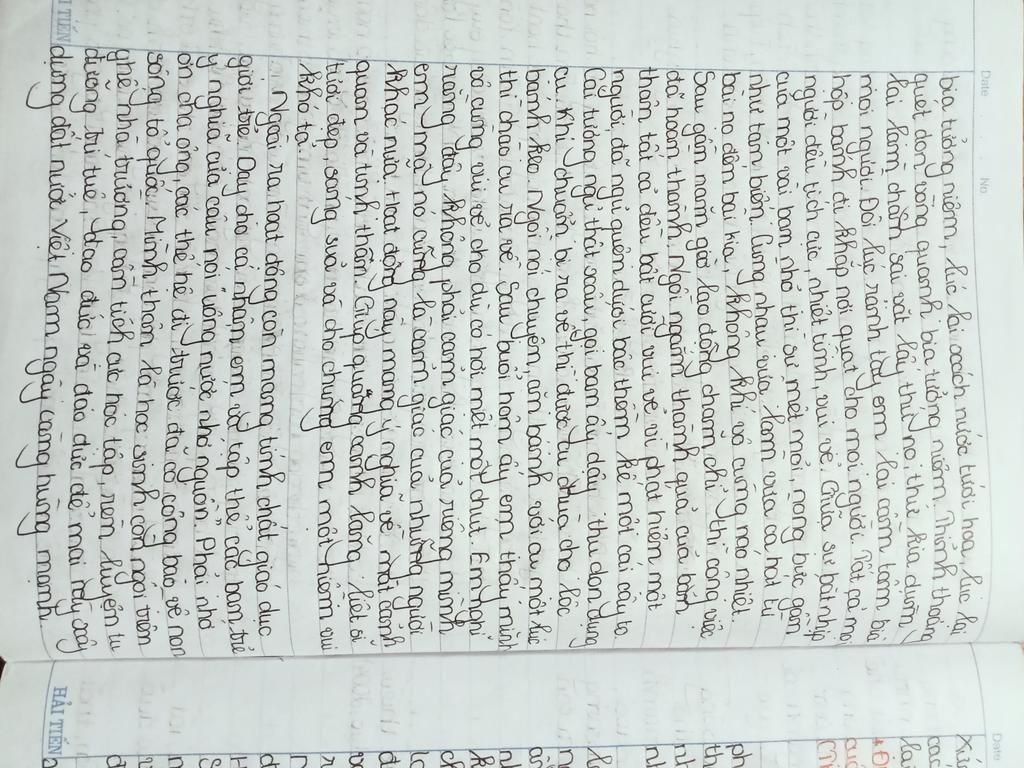 Date No.
bia tưởng niệm, lúc lại xách nước tưới hoa, lúc lại
quét dọn vòng quanh bia tưởng niệm. Thỉnh thoảng
lại làm chân sai vặt lấy thứ nọ, thứ kia dùm
mọi người. Đôi lúc rảnh tay em lại cầm tấm bìa
hộp bánh đi khắp nơi quạt cho mọi người. Tất cả mọi
người đều tích cực, nhiệt tình, vui vẻ. Giữa sự bất nhịp
của một vài bạn nhỏ thì sự mệt mỏi, nóng bức gần
như tan biến. Cùng nhau vừa làm vừa ca hát từ
bài nọ đến bài kia, không khí vô cùng náo nhiệt.
Sau gần năm giờ lao động chăm chỉ thì công việc
đã hoàn thành. Ngồi ngắm thành quả của bản
thân tất cả đều bật cười vui vẻ vì chợt hiện một
người, đã ngủ quên dưới bậc thềm kế một cái cây to.
Cái tướng ngủ thật xấu, gọi bạn ấy dậy thu dọn dụng
cụ. Khi chuẩn bị ra về thì được cụ đưa cho lốc
bánh kẹo. Ngồi nói chuyện, ăn bánh với cụ một lúc
thì chào cụ ra về. Sau buổi hôm ấy em thấy mình
vô cùng vui vẻ cho dù có hơi mệt một chút. Em nghĩ
rằng đây không phải cảm giác của riêng mình
em mà nó cũng là cảm giác của những người
khác nữa. Hoạt động này mang ý nghĩa về mặt cảnh
quan và tinh thần. Giúp quang cảnh lăng liệt sĩ
tươi đẹp, sáng sủa và cho chúng em một niềm vui
khó tả.
Ngoài ra, hoạt động còn mang tính chất giáo dục
giới trẻ. Dạy cho cá nhân em và tập thể các bạn trẻ
ý nghĩa của câu nói "Uống nước nhớ nguồn". Phải nhớ
ơn cha ông, các thế hệ đi trước đã có công bảo vệ non
sông tổ quốc. Mình thân là học sinh, còn ngồi trên
ghế nhà trường, cần tích cực học tập, rèn luyện tu
dưỡng trí tuệ, đạo đức và đạo đức để mai này xây
dựng đất nước Việt Nam ngày càng hùng mạnh.
HẢI TIẾN
Date